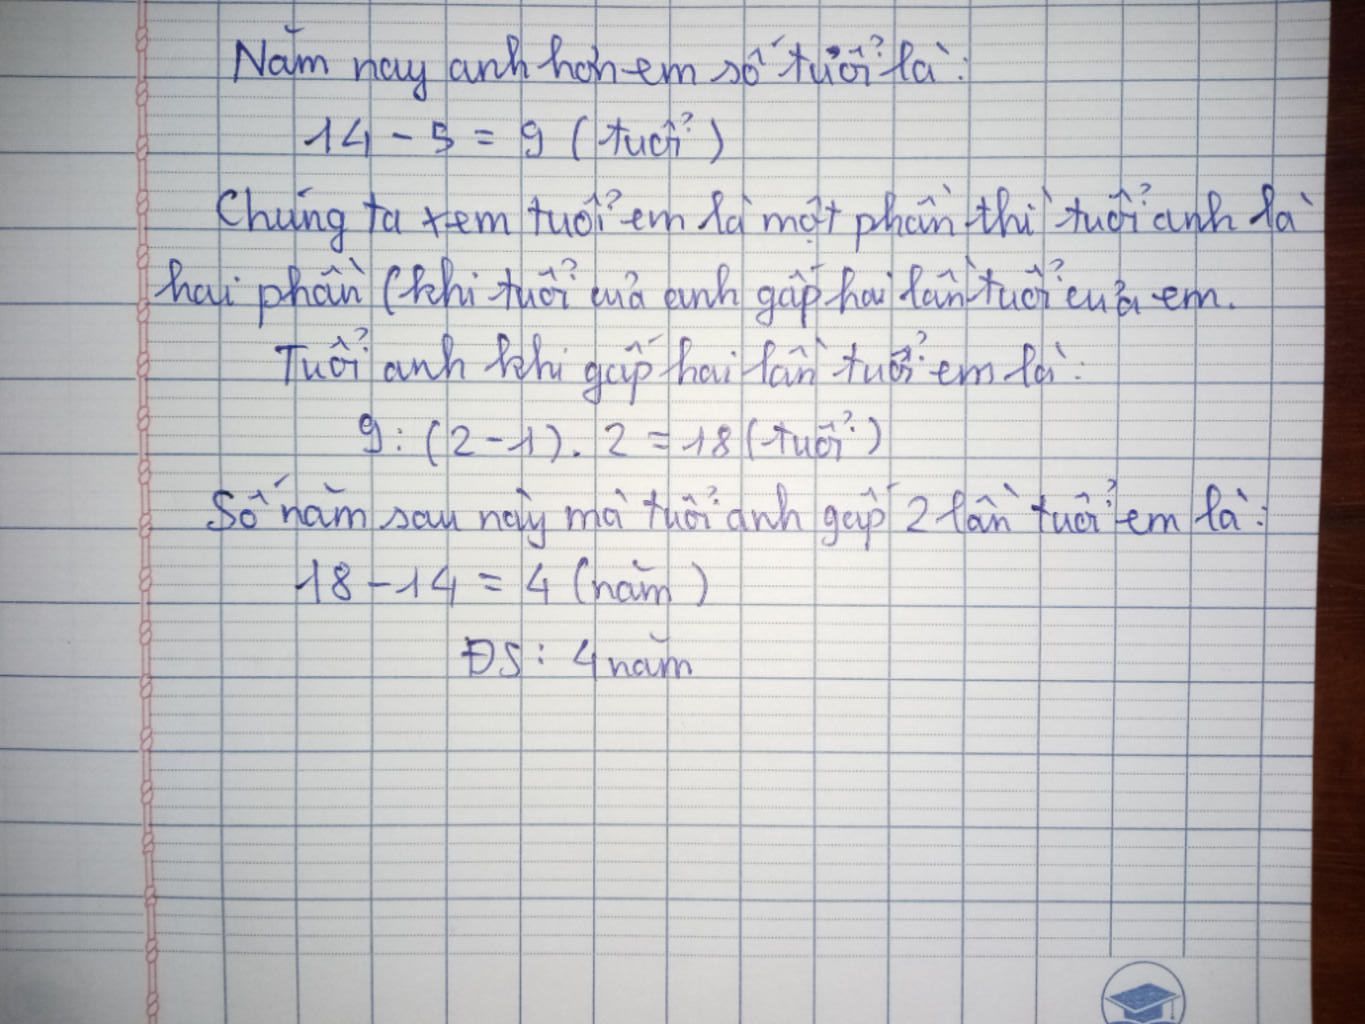 Năm nay anh hơn em số tuổi là:
14 - 5 = 9 (tuổi)
Chúng ta xem tuổi em là một phần thì tuổi anh là
hai phần (khi tuổi của anh gấp hai lần tuổi của em.
Tuổi anh khi gấp hai lần tuổi em là:
9 : (2 - 1) . 2 = 18 (tuổi)
Số năm sau này mà tuổi anh gấp 2 lần tuổi em là:
18 - 14 = 4 (năm)
ĐS : 4 năm